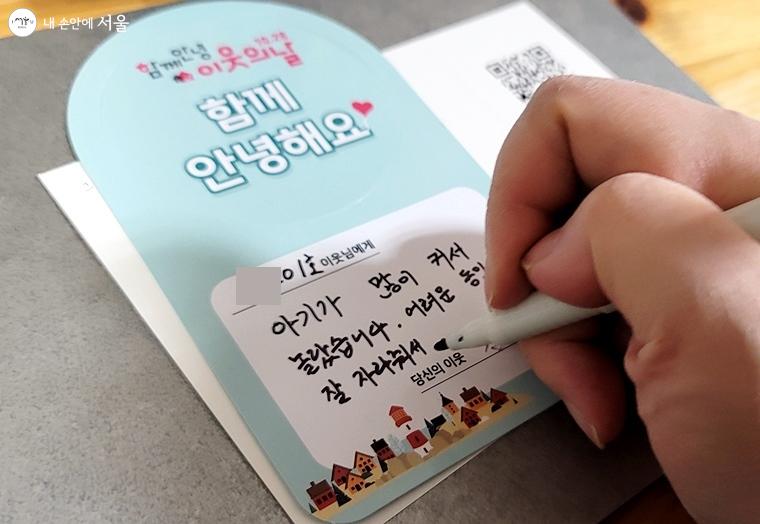 내 손안에 서울
10.28
함께안녕
이웃의날
함께
안녕해요
이호 이웃님에게
아기가 많이 커서
놀랐습니다. 어려운
잘 자라줘서
당신의 이웃